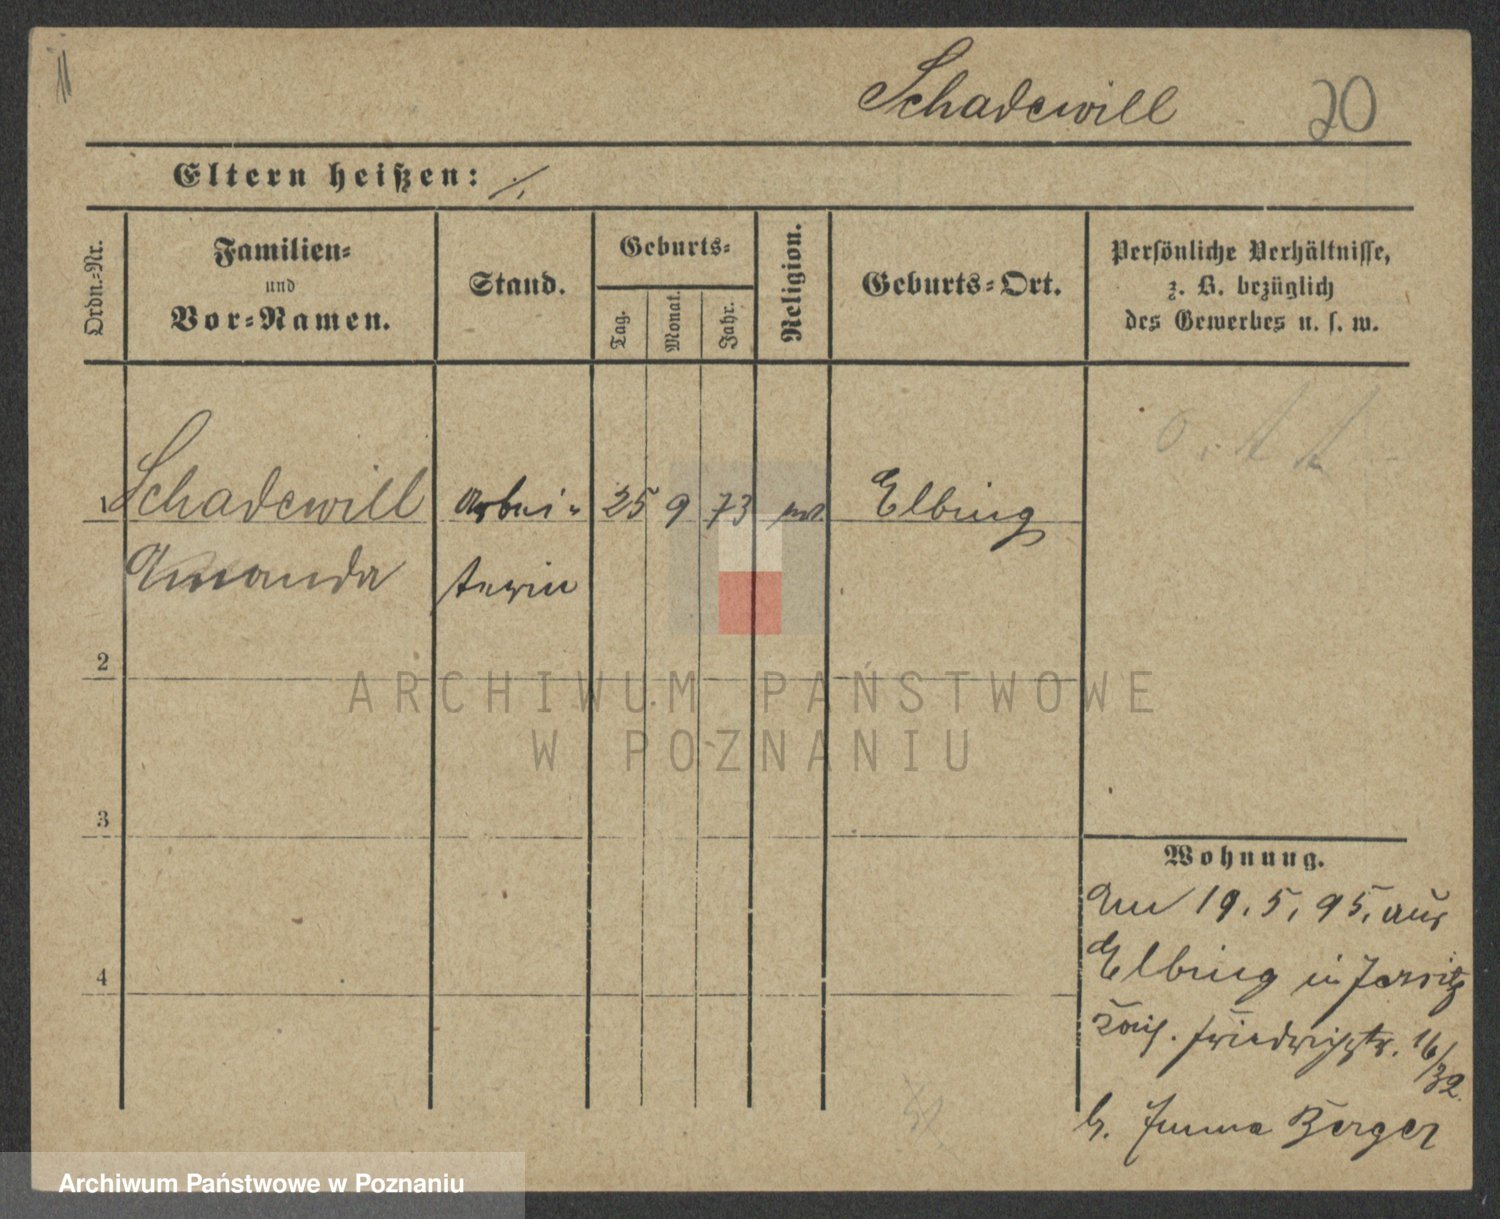 Schadewill 20
Eltern heißen: ./.
Ordn.-Nr.
Familien-
und
Vor-Namen.
Stand.
Geburts-
Tag.
Monat.
Jahr.
Religion.
Geburts-Ort.
Persönliche Verhältnisse,
z. B. bezüglich
des Gewerbes u. s. w.
1 Schadewill Arbei- 25 9 73 Elbing
Amanda terin
2
ARCHIWUM PAŃSTWOWE
W POZNANIU
3
Wohnung.
Am 19. 5. 95. aus
4 Elbing in Jersitz
Kais. Friedrichstr. 16/32
b. Emma Berger
Archiwum Państwowe w Poznaniu